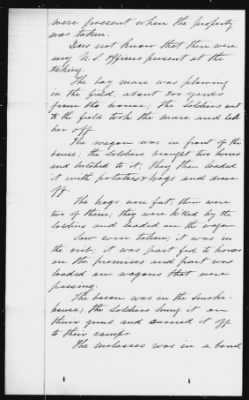 were present when the property
was taken.
Does not know that there were
any U S officers present at the
taking
The bay mare was plowing
in the field, about two yards
from the house; the soldiers went
to the field took the mare and led
her off.
The wagon was in front of the
house; the soldiers brought two horses
and hitched to it; they then loaded
it with potatoes & hogs and drove
off.
The hogs were fat; there were
two of them; they were killed by the
soldiers and loaded on the wagon
Saw corn taken; it was in
the crib; it was part fed to horses
on the premises and part was
loaded on wagons that were
pressing.
The bacon was in the smoke-
house; the soldiers hung it on
their guns and carried it off
to their camp.
The molasses was in a barrel